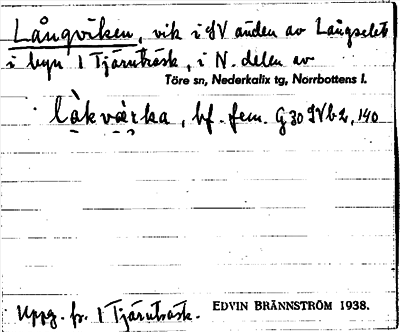 Långviken, vik i SV änden av Långselet
i byn 1 Tjärnträsk, i N. delen av
Töre sn, Nederkalix tg, Norrbottens l.
làkvæ̀rka, bf. fem. G 30 IV b 2, 140
Uppg. fr. 1 Tjärnträsk. EDVIN BRÄNNSTRÖM 1938.